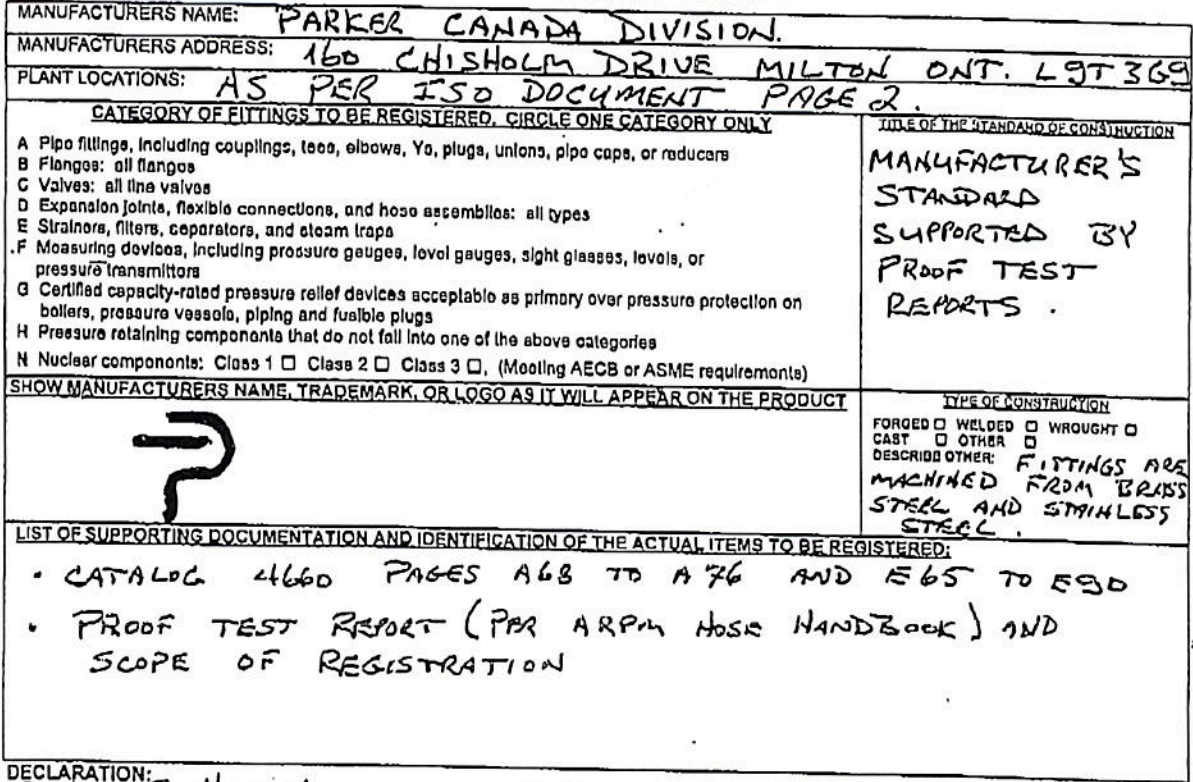 MANUFACTURERS NAME: PARKER CANADA DIVISION.
MANUFACTURERS ADDRESS: 160 CHISHOLM DRIVE MILTON ONT. L9T 3G9
PLANT LOCATIONS: AS PER ISO DOCUMENT PAGE 2.
CATEGORY OF FITTINGS TO BE REGISTERED, CIRCLE ONE CATEGORY ONLY
A Pipe fittings, including couplings, tees, elbows, Ys, plugs, unions, pipe caps, or reducers
B Flanges: all flanges
C Valves: all line valves
D Expansion joints, flexible connections, and hose assemblies: all types
E Strainers, filters, separators, and steam traps
F Measuring devices, including pressure gauges, level gauges, sight glasses, levels, or
pressure transmitters
G Certified capacity-rated pressure relief devices acceptable as primary over pressure protection on
boilers, pressure vessels, piping and fusible plugs
H Pressure retaining components that do not fall into one of the above categories
N Nuclear components: Class 1 □ Class 2 □ Class 3 □, (Meeting AECB or ASME requirements)
TITLE OF THE STANDARD OF CONSTRUCTION
MANUFACTURER'S
STANDARD
SUPPORTED BY
PROOF TEST
REPORTS.
SHOW MANUFACTURERS NAME, TRADEMARK, OR LOGO AS IT WILL APPEAR ON THE PRODUCT
TYPE OF CONSTRUCTION
FORGED □ WELDED □ WROUGHT □
CAST □ OTHER □
DESCRIBE OTHER: FITTINGS ARE
MACHINED FROM BRASS
STEEL AND STAINLESS
STEEL.
LIST OF SUPPORTING DOCUMENTATION AND IDENTIFICATION OF THE ACTUAL ITEMS TO BE REGISTERED:
• CATALOG 4660 PAGES A68 TO A76 AND E65 TO E90
• PROOF TEST REPORT (PER ARPM HOSE HANDBOOK) AND
SCOPE OF REGISTRATION
DECLARATION: